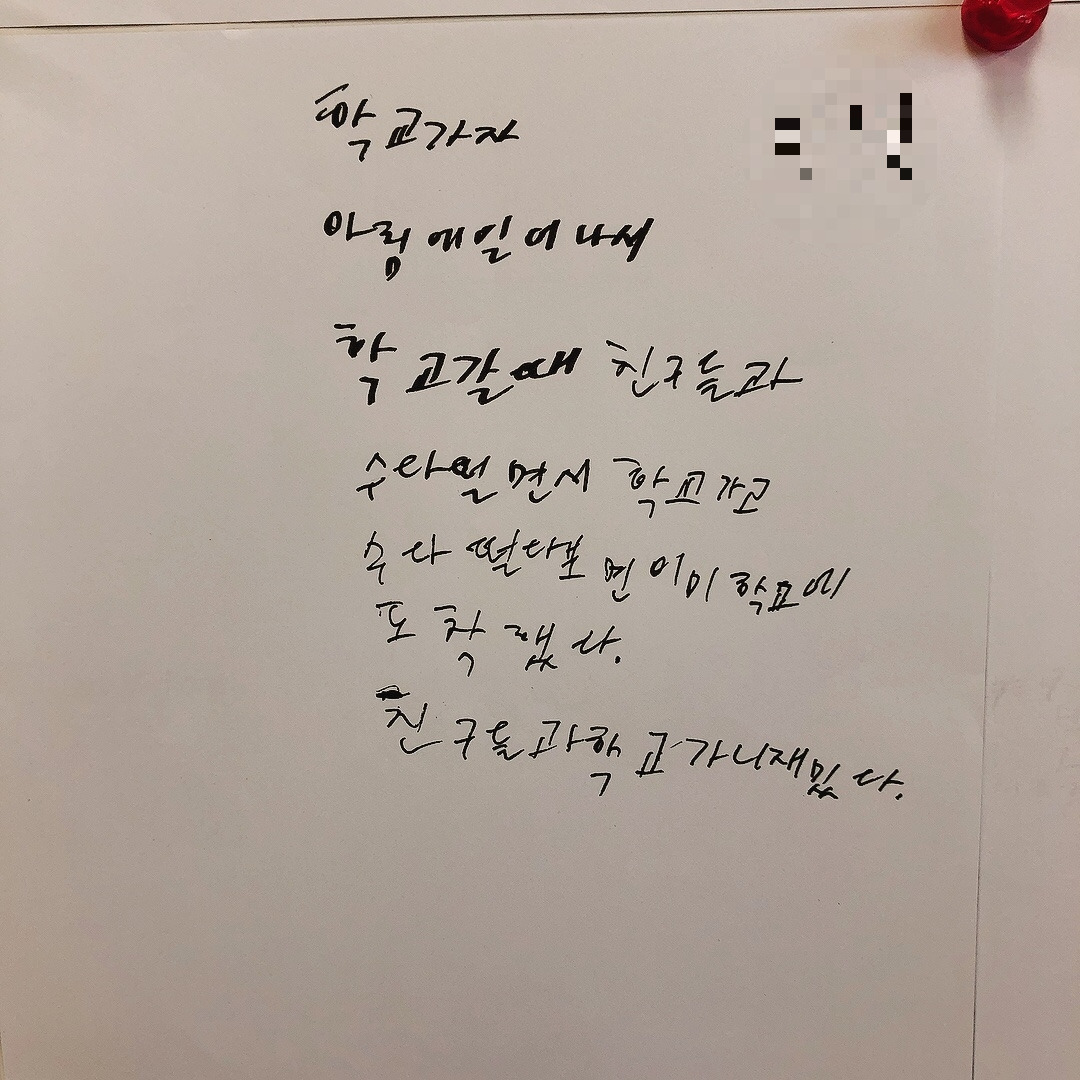 학교가자
아침에일어나서
학교갈때 친구들과
수다떨면서 학교가고
수다 떨다보면 이미 학교에
도착했다.
친구들과학교가니재밌다.